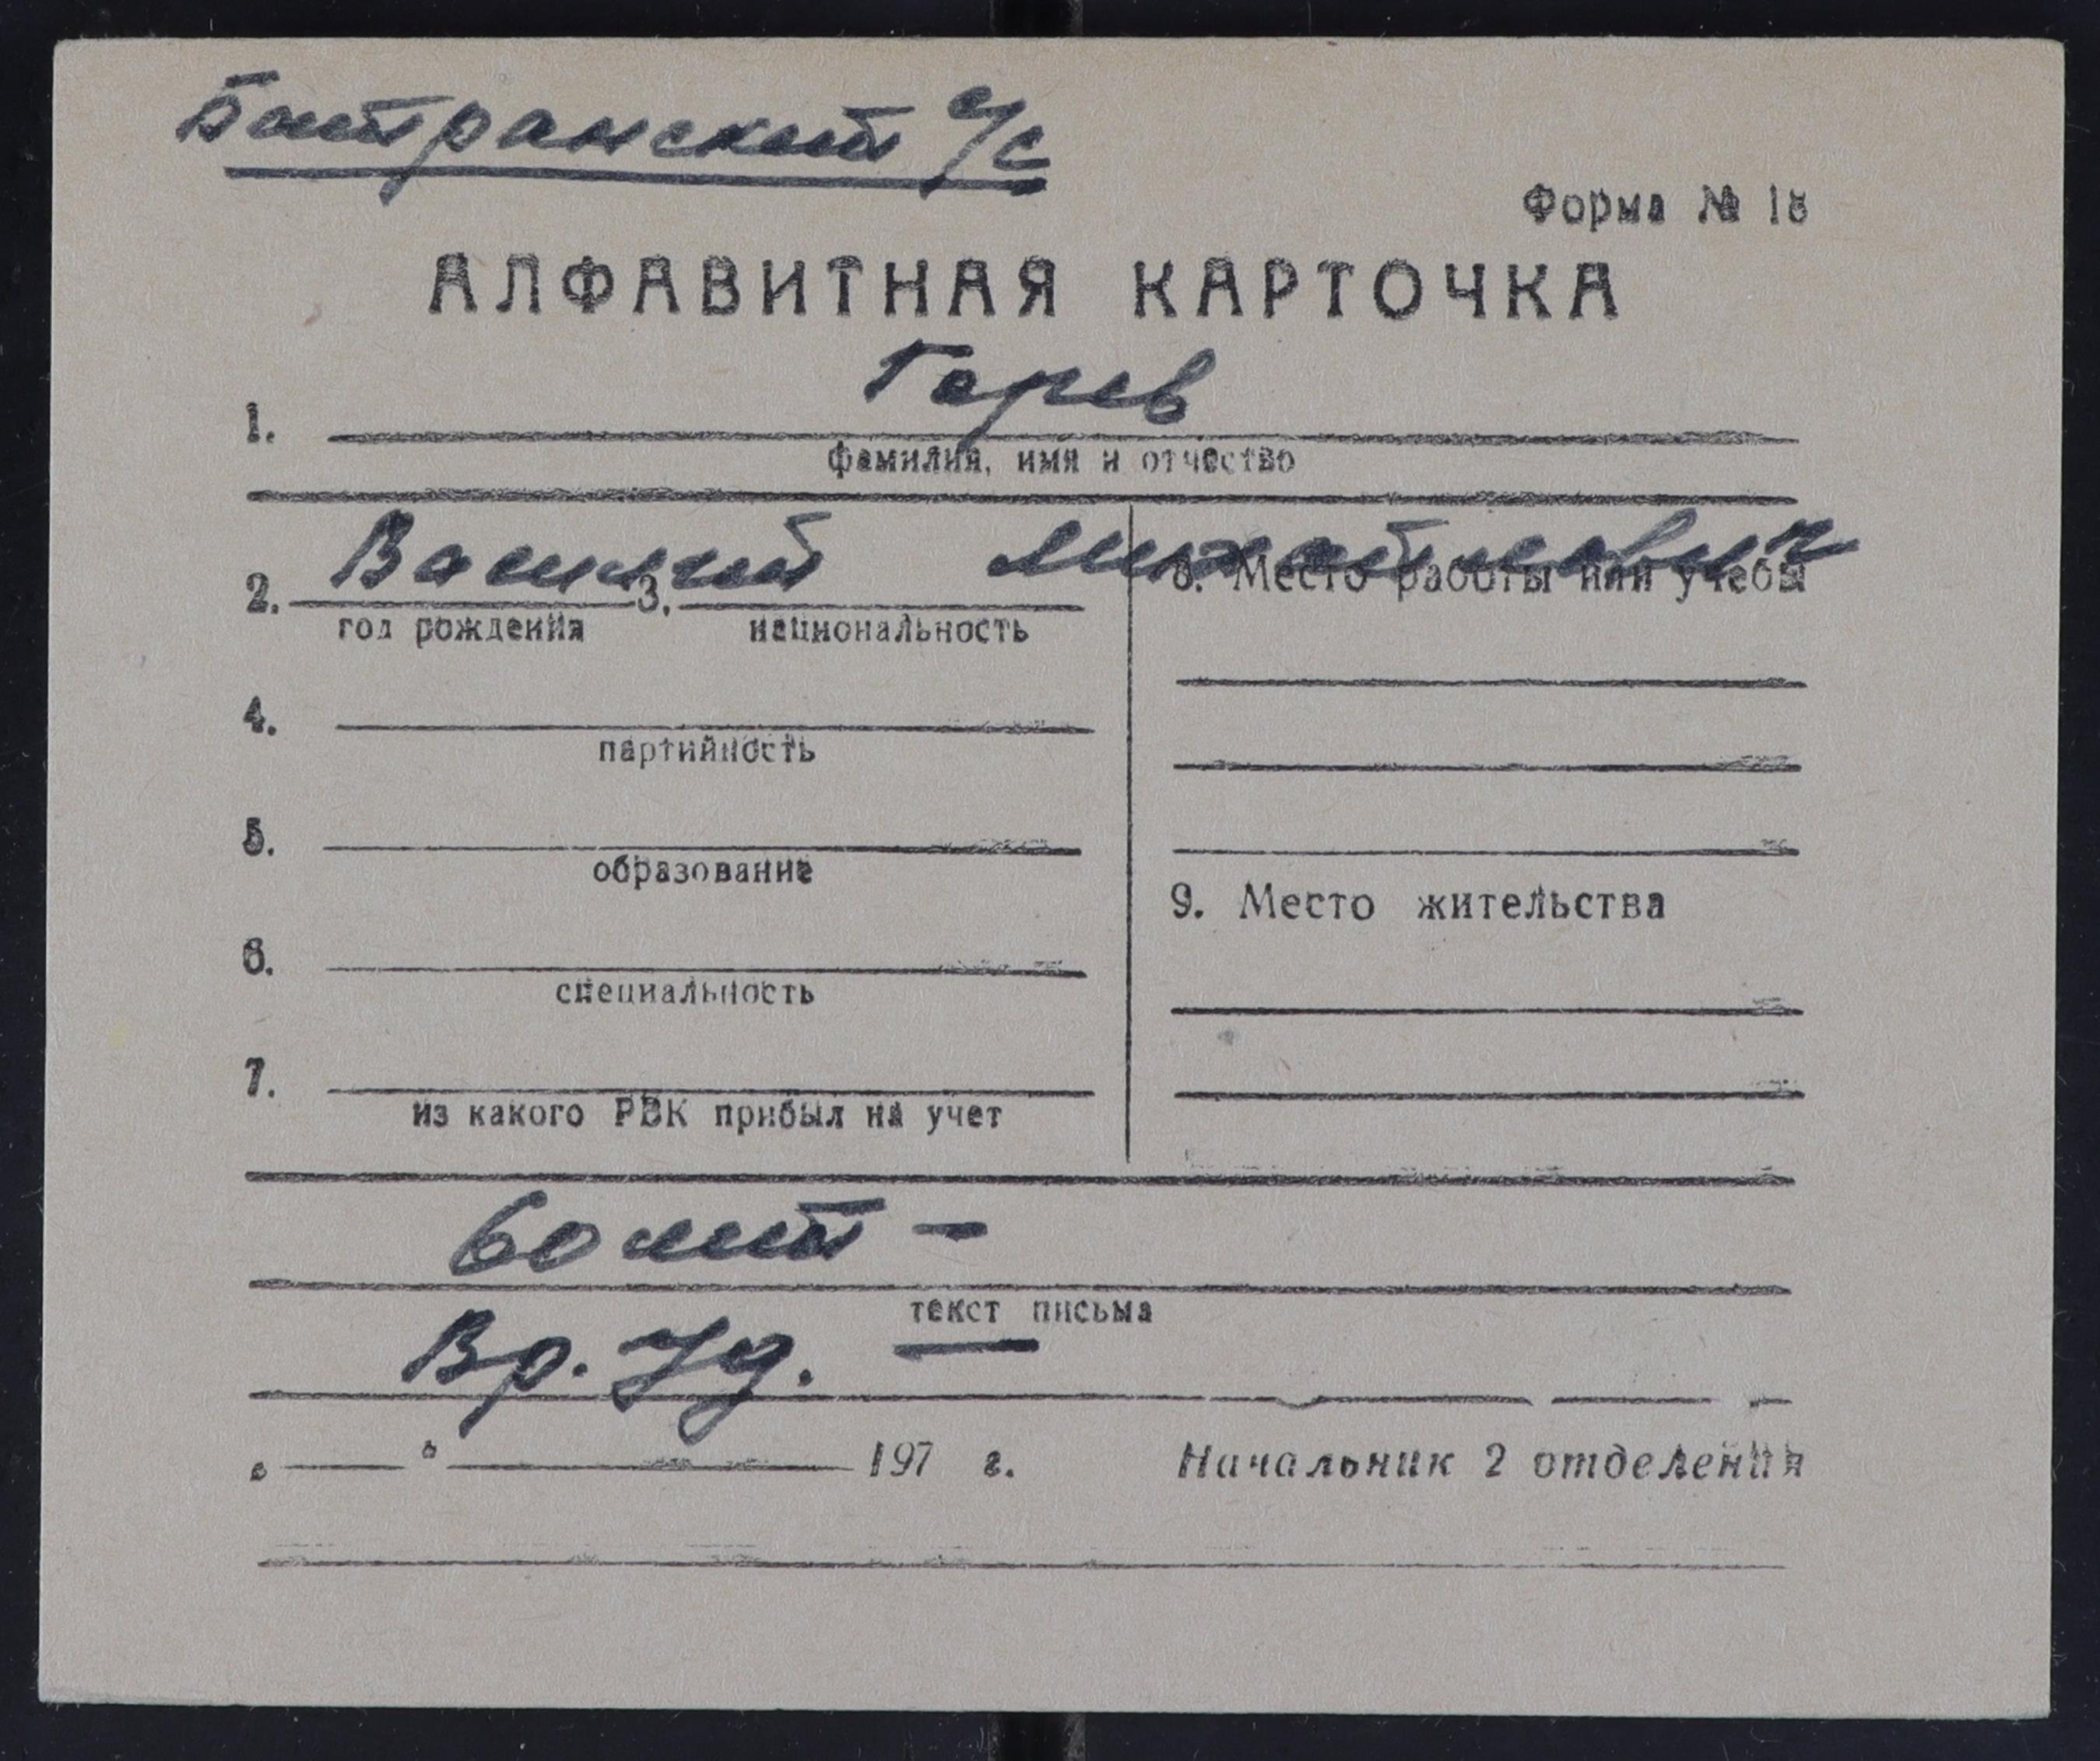 Байтранский с/с
Форма № 18
АЛФАВИТНАЯ КАРТОЧКА
Гарев
1.
фамилия, имя и отчество
Василий Михайлович
2. 3. 8. Место работы или учебы
год рождения национальность
4.
партийность
5.
образование
9. Место жительства
6.
специальность
7.
из какого РВК прибыл на учет
60 лет –
текст письма
Вр. Уд. —
" " 197 г. Начальник 2 отделения